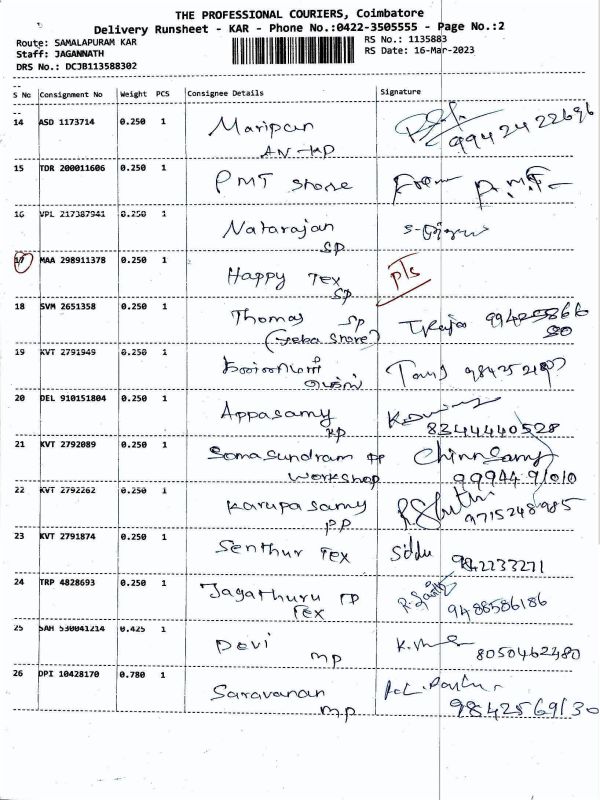 THE PROFESSIONAL COURIERS, Coimbatore
Delivery Runsheet - KAR - Phone No.:0422-3505555 - Page No.:2
Route: SAMALAPURAM KAR
RS No.: 1135883
Staff: JAGANNATH
RS Date: 16-Mar-2023
DRS No.: DCJB113588302
S No Consignment No Weight PCS Consignee Details Signature
14 ASD 1173714 0.250 1 Maripan
AN-MP 9942422696
15 TDR 200011606 0.250 1 PMT Store From P.M.T
16 VPL 217387941 0.250 1 Natarajan
SP
17 MAA 298911378 0.250 1 Happy Tex pts
SP
18 SVM 2651358 0.250 1 Thomas SP T.Raja
(Jeba Store)
19 KVT 2791949 0.250 1
20 DEL 910151804 0.250 1 Appasamy
MP 8344440528
21 KVT 2792089 0.250 1 Somasundram PP Chinnsamy
Workshop
22 KVT 2792262 0.250 1 Karupasamy
PP 9715248985
23 KVT 2791874 0.250 1 Senthur Tex Siddu
942233271
24 TRP 4828693 0.250 1 Jagathuru TP
Tex 9488586186
25 SAH 530041214 0.425 1 Devi
MP 8050462480
26 DPI 10428170 0.780 1 Saravanan
MP 9842569130